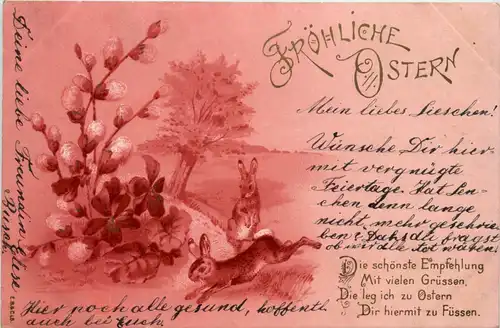 Fröhliche
Ostern
Mein liebes Lieschen!
Wünsche Dir hier-
mit vergnügte
Feiertage. Hat Len-
chen denn lange
nicht mehr geschrie-
ben?
ob wir alle tot wären.
Die schönste Empfehlung
Mit vielen Grüssen,
Die leg ich zu Ostern
Dir hiermit zu Füssen.
Hier noch alle gesund, hoffentl.
auch bei Euch.
Deine liebe Freundin Elise